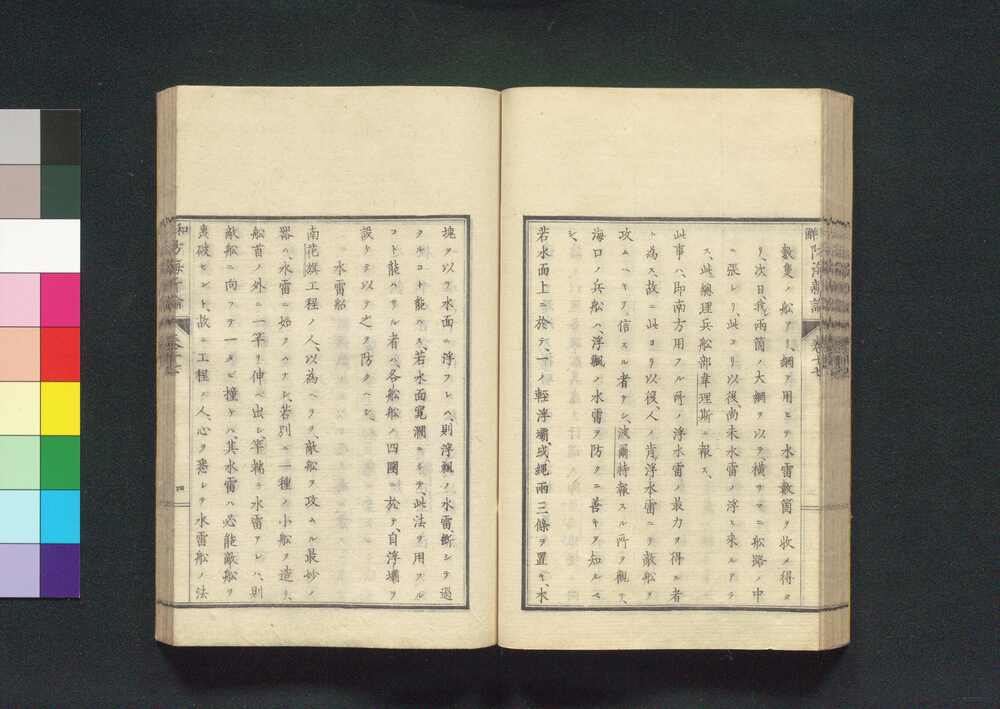 數隻ノ船アリ、網ヲ用ヒテ水雷數箇ヲ收メ得タ
リ、次日、我兩箇ノ大網ヲ以ヲ、橫サマニ船路ノ中
ニ張レリ、此ヨリ以後尚未水雷ノ浮ミ來ルアラ
ス、此總理兵船部韋理斯ノ報ス、
此事ハ、即南方用フル所ノ浮水雷ノ最力ヲ得ル者
ト爲ス、故ニ此ヨリ以後、人ノ肯浮水雷ニテ敵船ヲ
攻ムヘキヲ信スル者ナシ、波爾特報スル所ヲ觀テ、
海口ノ兵船ハ、浮飄ノ水雷ヲ防クニ善キヲ知ルヘ
シ、
若水面上ニ於テ、一ノ輕浮壩、或ハ繩兩三條ヲ置キ、木
塊ヲ以ヲ水面ニ浮フレハ、則浮飄ノ水雷、斷シテ過
クルコト能ハス、若水面寬濶ニシテ、此法ヲ用フル
コト能ハサル者ハ、各船、船ノ四圍ニ於テ、自浮壩ヲ
設ケヲ以テ之ヲ防クヘシ、
水雷船
南花旗工程ノ人、以為ヘラク、敵船ヲ攻ムル最妙ノ
器ハ、水雷ニ如クハナシ、若別ニ一種ノ小船ヲ造リ、
船首ノ外ニ一竿ヲ伸ヘ出シ、竿端ニ水雷アレハ、則
敵船ニ向フテ一タビ撞ケハ、其水雷ハ必能敵船ヲ
轟破セント、故ニ工程ノ人、心ヲ悉シテ水雷船ノ法
防海新論
卷十七
四